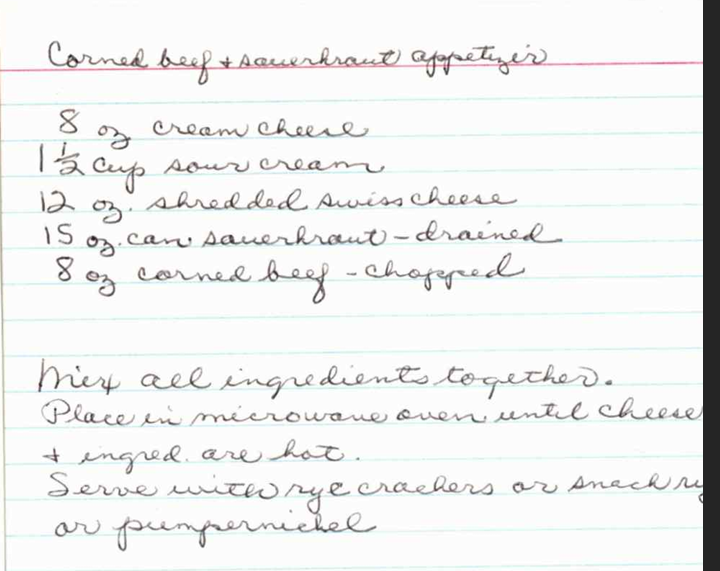 Corned beef + sauerkraut appetizer
8 oz cream cheese
1 ½ cup sour cream
12 oz. shredded swiss cheese
15 oz. can sauerkraut - drained
8 oz corned beef - chopped
Mix all ingredients together.
Place in microwave oven until cheese
+ ingred. are hot.
Serve with rye crackers or snack ry
or pumpernickel